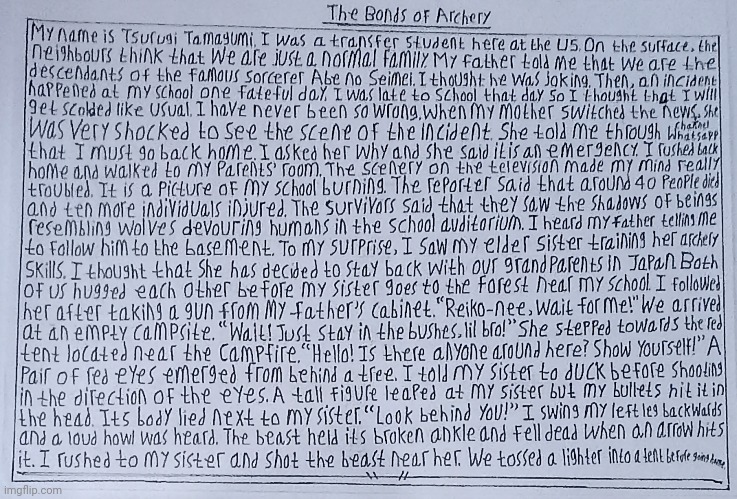 The Bonds of Archery
My name is Tsurugi Tamagumi. I was a transfer student here at the US. On the surface, the
neighbours think that we are just a normal family My father told me that we are the
descendants of the famous sorcerer Abe no Seimei. I thought he was joking. Then, an incident
happened at my school one fateful day. I was late to school that day so I thought that I will
get scolded like usual. I have never been so wrong. When my mother switched the news, she
was very shocked to see the scene of the incident. She told me through Whatsapp
that I must go back home. I asked her why and she said it is an emergency. I rushed back
home and walked to my parents' room. The scenery on the television made my mind really
troubled. It is a picture of my school burning. The reporter said that around 40 people died
and ten more individuals injured. The survivors said that they saw the shadows of beings
resembling wolves devouring humans in the school auditorium. I heard my father telling me
to follow him to the basement. To my surprise, I saw my elder sister training her archery
skills. I thought that she has decided to stay back with our grandparents in Japan Both
of us hugged each other before my sister goes to the forest near my school. I followed
her after taking a gun from my father's cabinet. "Reiko-nee, wait for me!" We arrived
at an empty campsite. "Wait! Just stay in the bushes, lil bro!" She stepped towards the red
tent located near the campfire. "Hello! Is there anyone around here? Show yourself!" A
pair of red eyes emerged from behind a tree. I told my sister to duck before shooting
in the direction of the eyes. A tall figure leaped at my sister but my bullets hit it in
the head. Its body lied next to my sister. "Look behind you!" I swing my left leg backwards
and a loud howl was heard. The beast held its broken ankle and fell dead when an arrow hits
it. I rushed to my sister and shot the beast near her. We tossed a lighter into a tent before going home.
imgflip.com